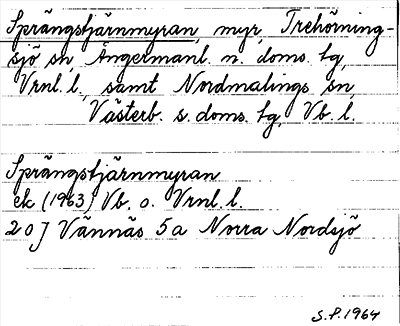 Sprängstjärnmyran, myr, Trehörning-
sjö sn, Ångermanl. n. doms. tg,
Vrnl. l., samt Nordmalings sn,
Västerb. s. doms. tg, Vb. l.
Sprängstjärnmyran
ek (1963) Vb. o. Vrnl. l.
20J Vännäs 5a Norra Nordsjö
S.P. 1964